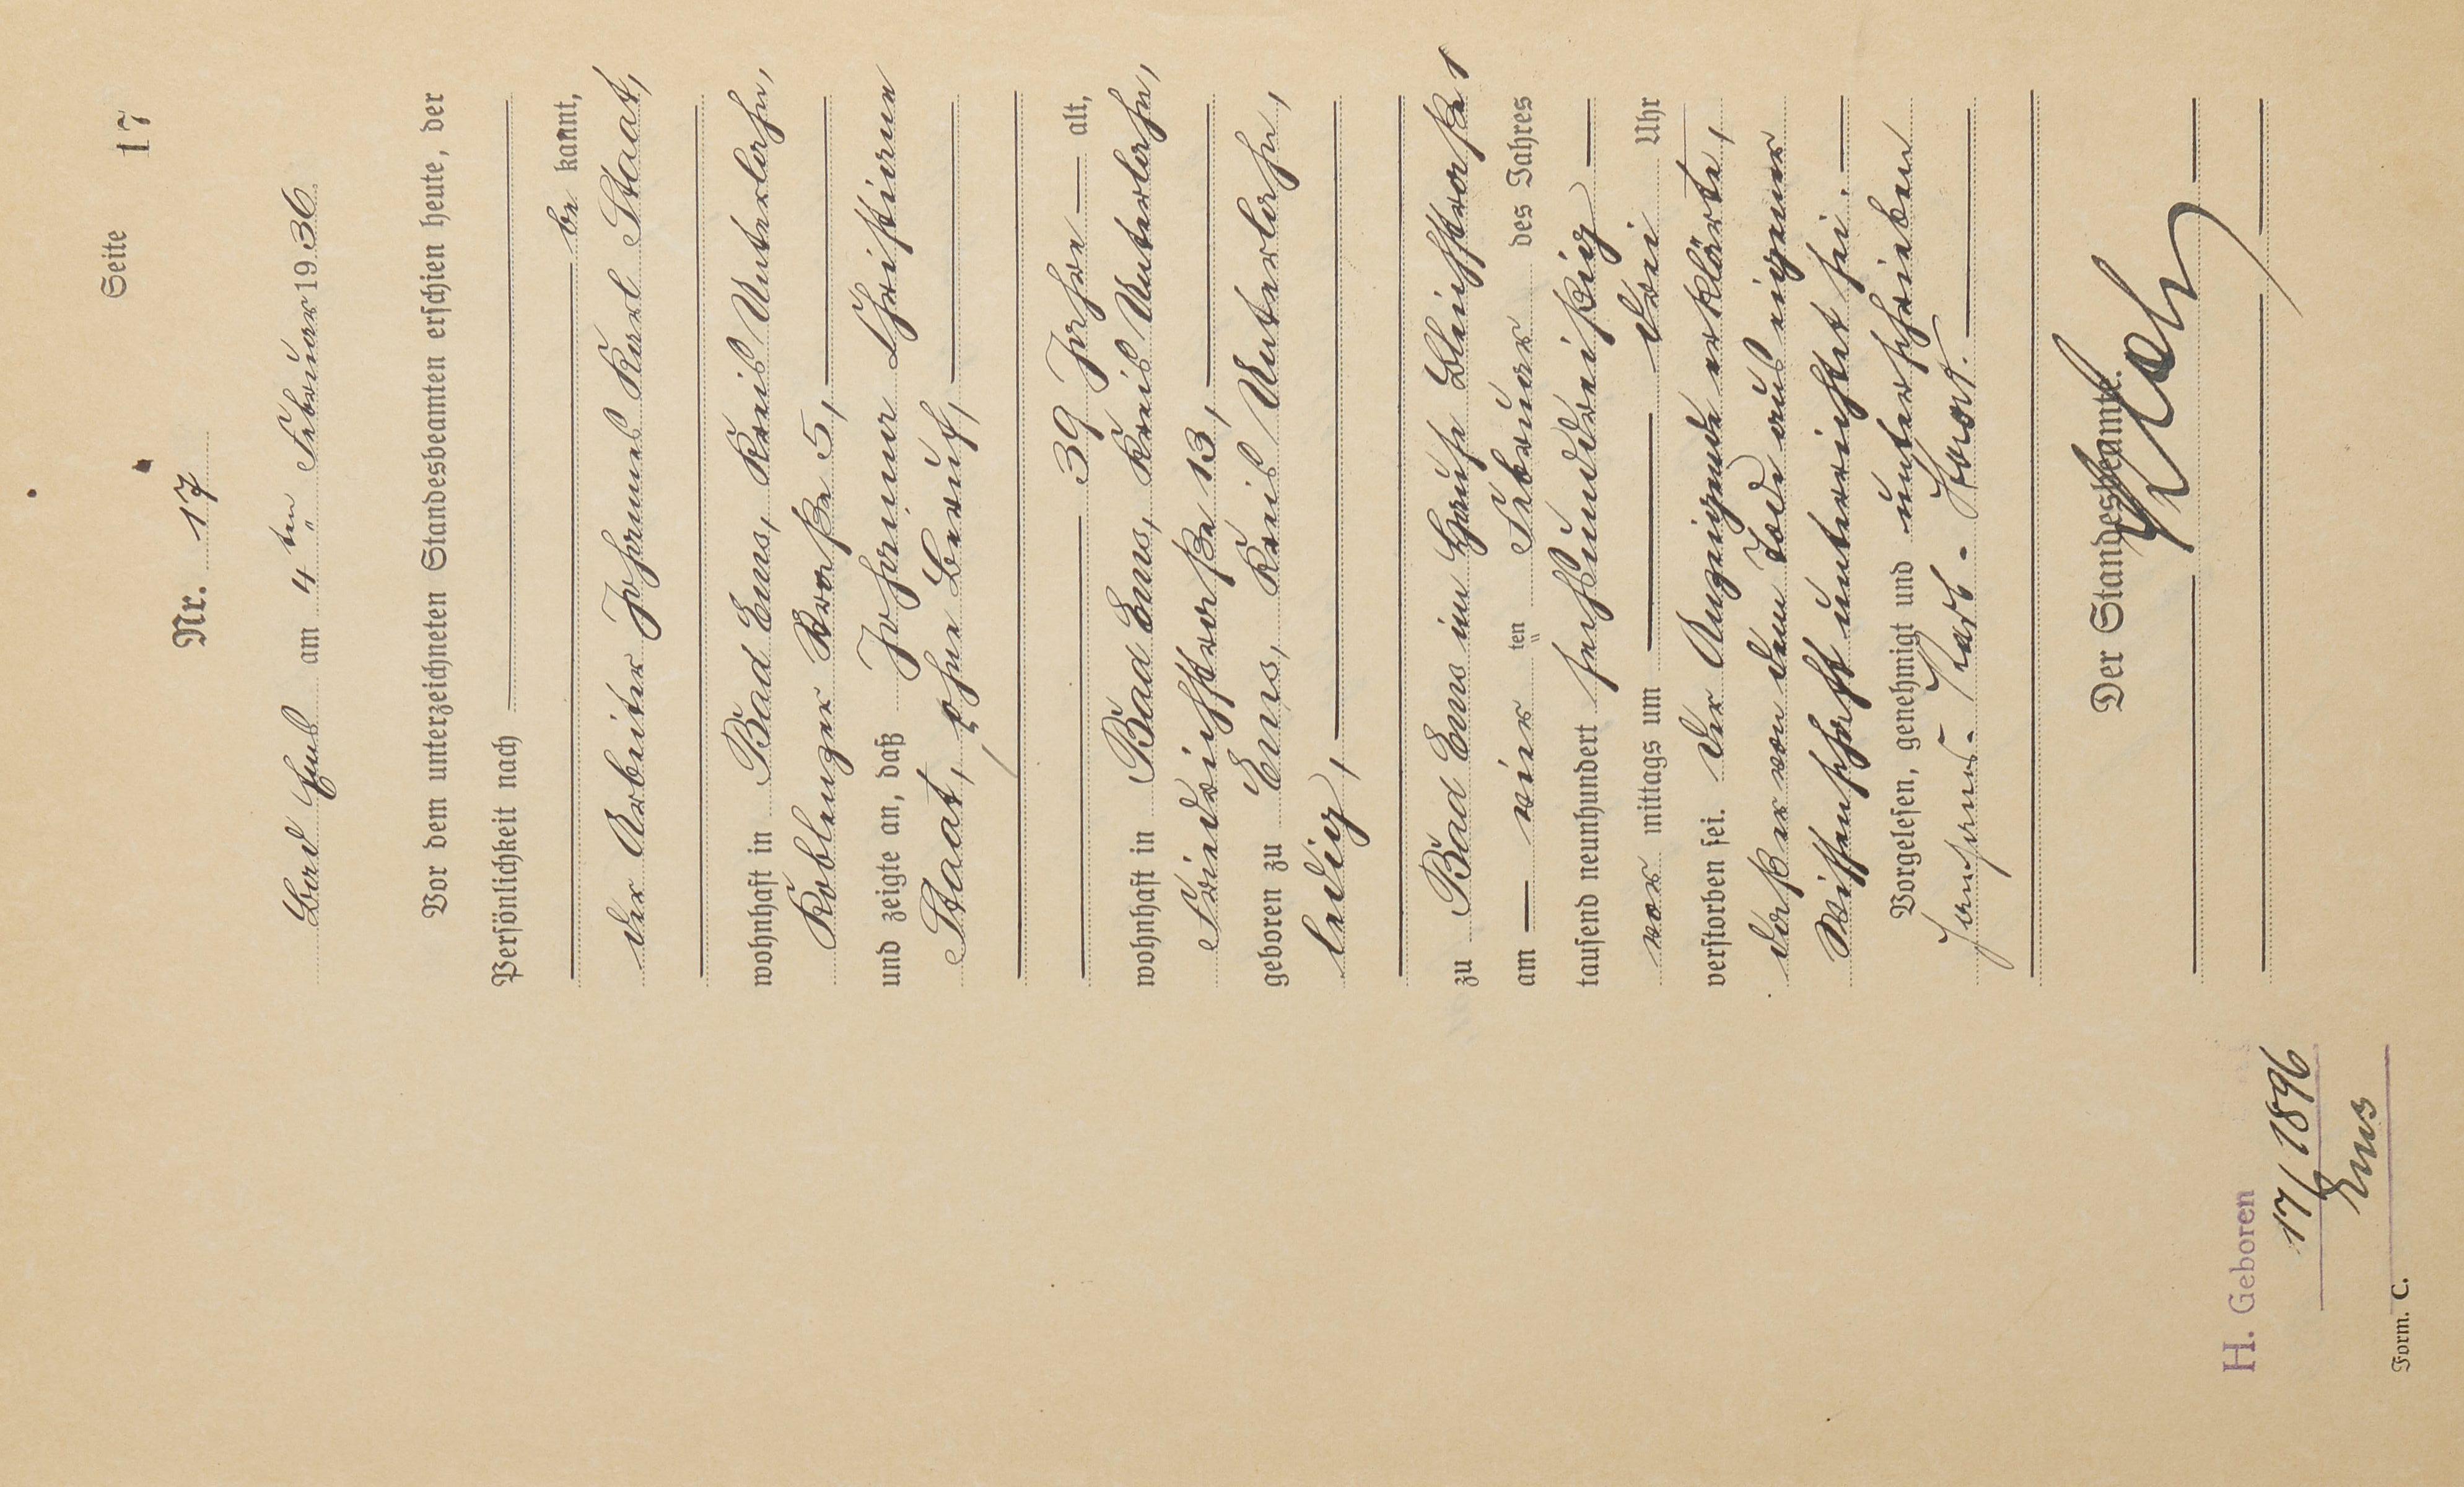 Seite 17
Nr. 17
Bad Ems am 4 ten Februar 1936
Vor dem unterzeichneten Standesbeamten erschien heute, der
Persönlichkeit nach
be kannt,
der Arbeiter Johannes Karl Staat,
wohnhaft in Bad Ems, Kreis Unterlahn,
Koblenzer Straße 5,
und zeigte an, daß Johanna Christiane
Staat, ohne Beruf,
39 Jahre alt,
wohnhaft in Bad Ems, Kreis Unterlahn,
Friedrichstraße 13,
geboren zu Ems, Kreis Unterlahn,
ledig,
zu Bad Ems im Hause Bleichstraße 1
am vier ten Februar des Jahres
tausend neunhundert sechsunddreißig
vor mittags um drei Uhr
verstorben sei. Der Anzeigende erklärte,
daß er von dem Tode aus eigener
Wissenschaft unterrichtet sei.
Vorgelesen, genehmigt und unterschrieben
Johannes Karl Staat.
Der Standesbeamte.
H. Geboren
17/1896
Ems
Form. C.